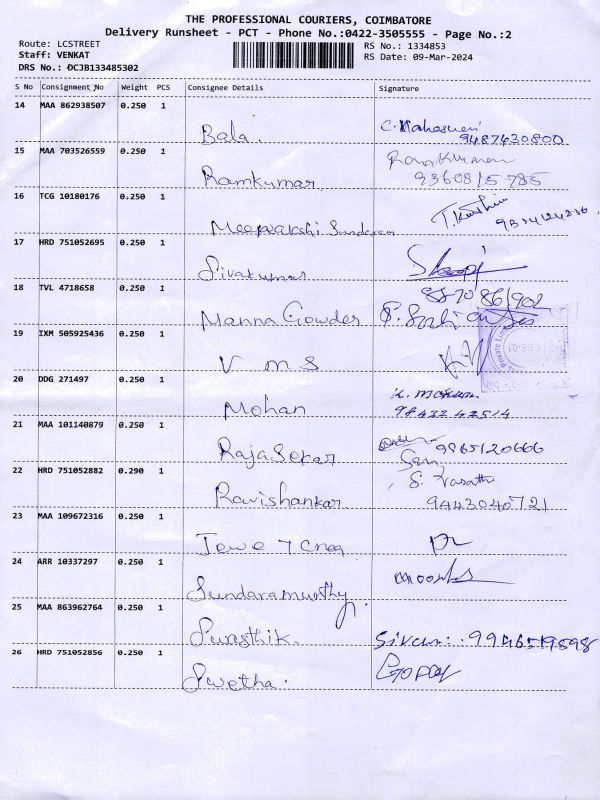 THE PROFESSIONAL COURIERS, COIMBATORE
Delivery Runsheet - PCT - Phone No.:0422-3505555 - Page No.:2
Route: LCSTREET
RS No.: 1334853
Staff: VENKAT
RS Date: 09-Mar-2024
DRS No.: DCJB133485302
S No Consignment No Weight PCS Consignee Details Signature
14 MAA 862938507 0.250 1
Bala. C. Mahasweri
9487630800
15 MAA 703526559 0.250 1
Ramkumar Ramkumar
9360815785
16 TCG 10180176 0.250 1
Meenakshi Sundaram
17 HRD 751052695 0.250 1
Sivakumar
18 TVL 4718658 0.250 1
8870861902
Manna Gowder
19 IXM 505925436 0.250 1
V M S
20 DDG 271497 0.250 1
Mohan
98422 42514
21 MAA 101140879 0.250 1
RajaSekar 9965120666
22 HRD 751052882 0.290 1
Ravishankar 9443040721
23 MAA 109672316 0.250 1
24 ARR 10337297 0.250 1
Sundaramurthy
25 MAA 863962764 0.250 1
Swasthik. 9946519598
26 HRD 751052856 0.250 1
Swetha. Gopay